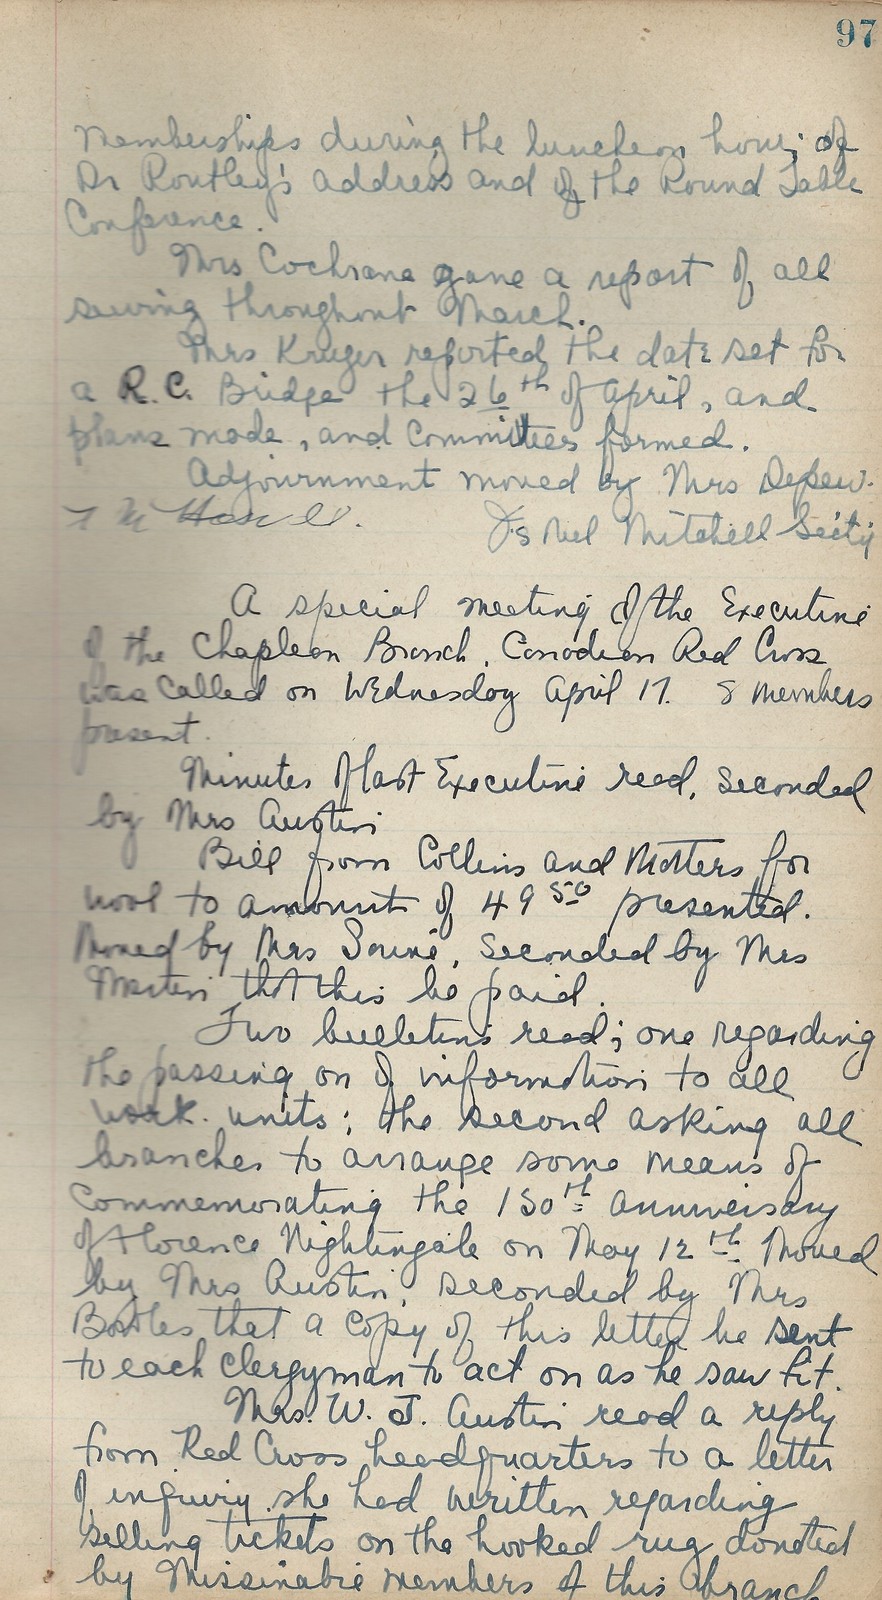 97
Memberships during the luncheon hour; of
Dr Routley's address and of the Round Table
Conference.
Mrs Cochrane gave a report of all
sewing throughout March.
Mrs Kruger reported the date set for
a R.C. Bridge the 26th of April, and
plans made, and Committees formed.
Adjournment moved by Mrs Depew.
Isabel Mitchell Sec'ty
A special meeting of the Executive
of the Chapleau Branch, Canadian Red Cross
was called on Wednesday April 17. 8 members
present.
Minutes of last Executive read, seconded
by Mrs Austin
Bill from Collins and Matters for
wool to amount of 49 50 presented.
Moved by Mrs Soulié, seconded by Mrs
that this be paid.
Two bulletins read; one regarding
the passing on of information to all
work units; the second asking all
branches to arrange some means of
Commemorating the 150th anniversary
of Florence Nightingale on May 12th. Moved
by Mrs Austin, seconded by Mrs
that a copy of this letter be sent
to each Clergyman to act on as he saw fit.
Mrs. W. J. Austin read a reply
from Red Cross headquarters to a letter
of inquiry she had written regarding
selling tickets on the hooked rug donated
by Missinabie members of this branch